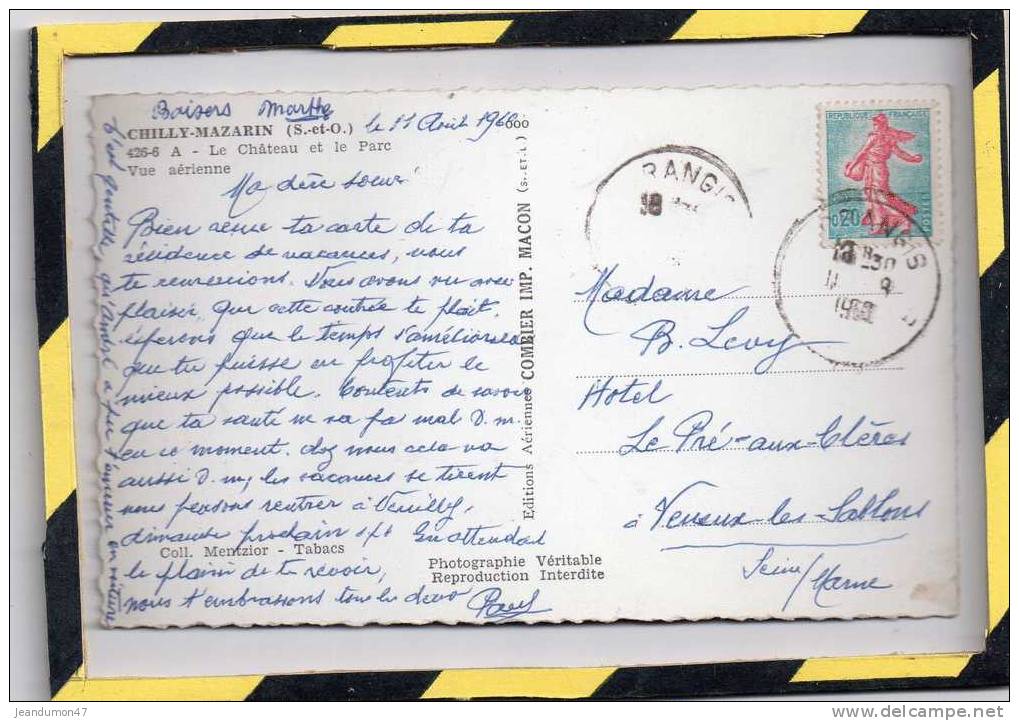 Baisers Marthe
CHILLY-MAZARIN (S.-et-O.) le 11 Août 1960
426-6 A - Le Château et le Parc
Vue aérienne
Ma chère soeur
Bien reçue ta carte de ta
résidence de vacances, nous
te remercions. Nous avons vu avec
plaisir, que cette contrée te plait,
espérons que le temps s'améliorera
que tu puisse en profiter le
mieux possible. Contents de savoir
que ta santé ne va pas mal D. m.
en ce moment. chez nous cela va
aussi D. m, les vacances se tirent
nous pensons rentrer à Neuilly,
dimanche prochain En attendant
Coll. Mentzior - Tabacs
le plaisir de te revoir,
nous t'embrassons tous les deux Paul
C'est gentil, qu'André a pu t'amener en voiture
Editions Aériennes COMBIER IMP. MACON (S.-ET-L.)
Photographie Véritable
Reproduction Interdite
RANGIS
18
REPUBLIQUE FRANÇAISE
0,20
POSTES
RANGIS
Madame
B. Levy
Hotel
Le Pré-aux-Clères
à Veneux les Sablons
Seine/Marne
© jeandumon47
www.delcampe.net